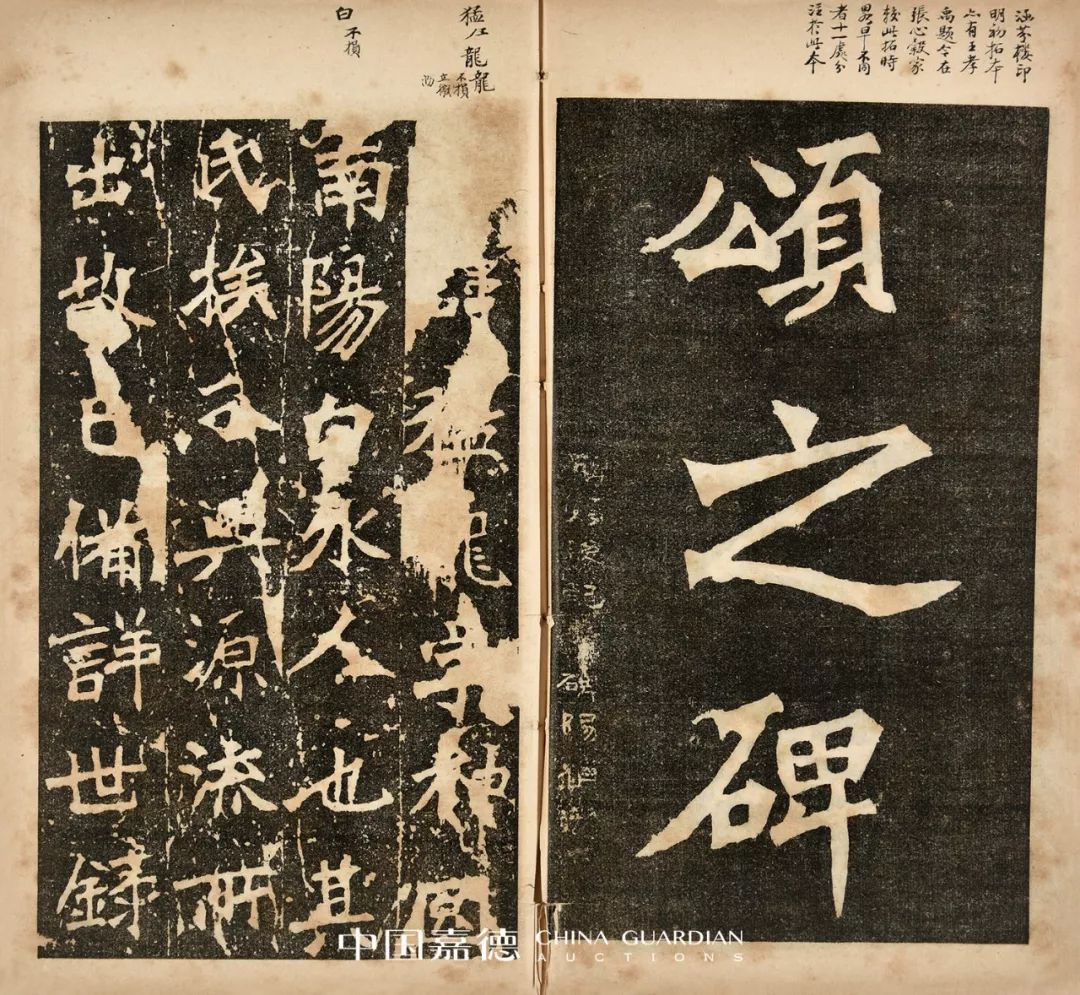 涵芬樓印
明初拓本
亦有王孝
禹題今在
張心穀家
較此拓時
畧早不同
者十一處分
注於此本
頌之碑
碑陽
猛
龍龍
不損
白不損
猛龍字神冏
南陽白水人也其
氏族分興源流所
出故已備詳世錄
中国嘉德 CHINA GUARDIAN
AUCTIONS